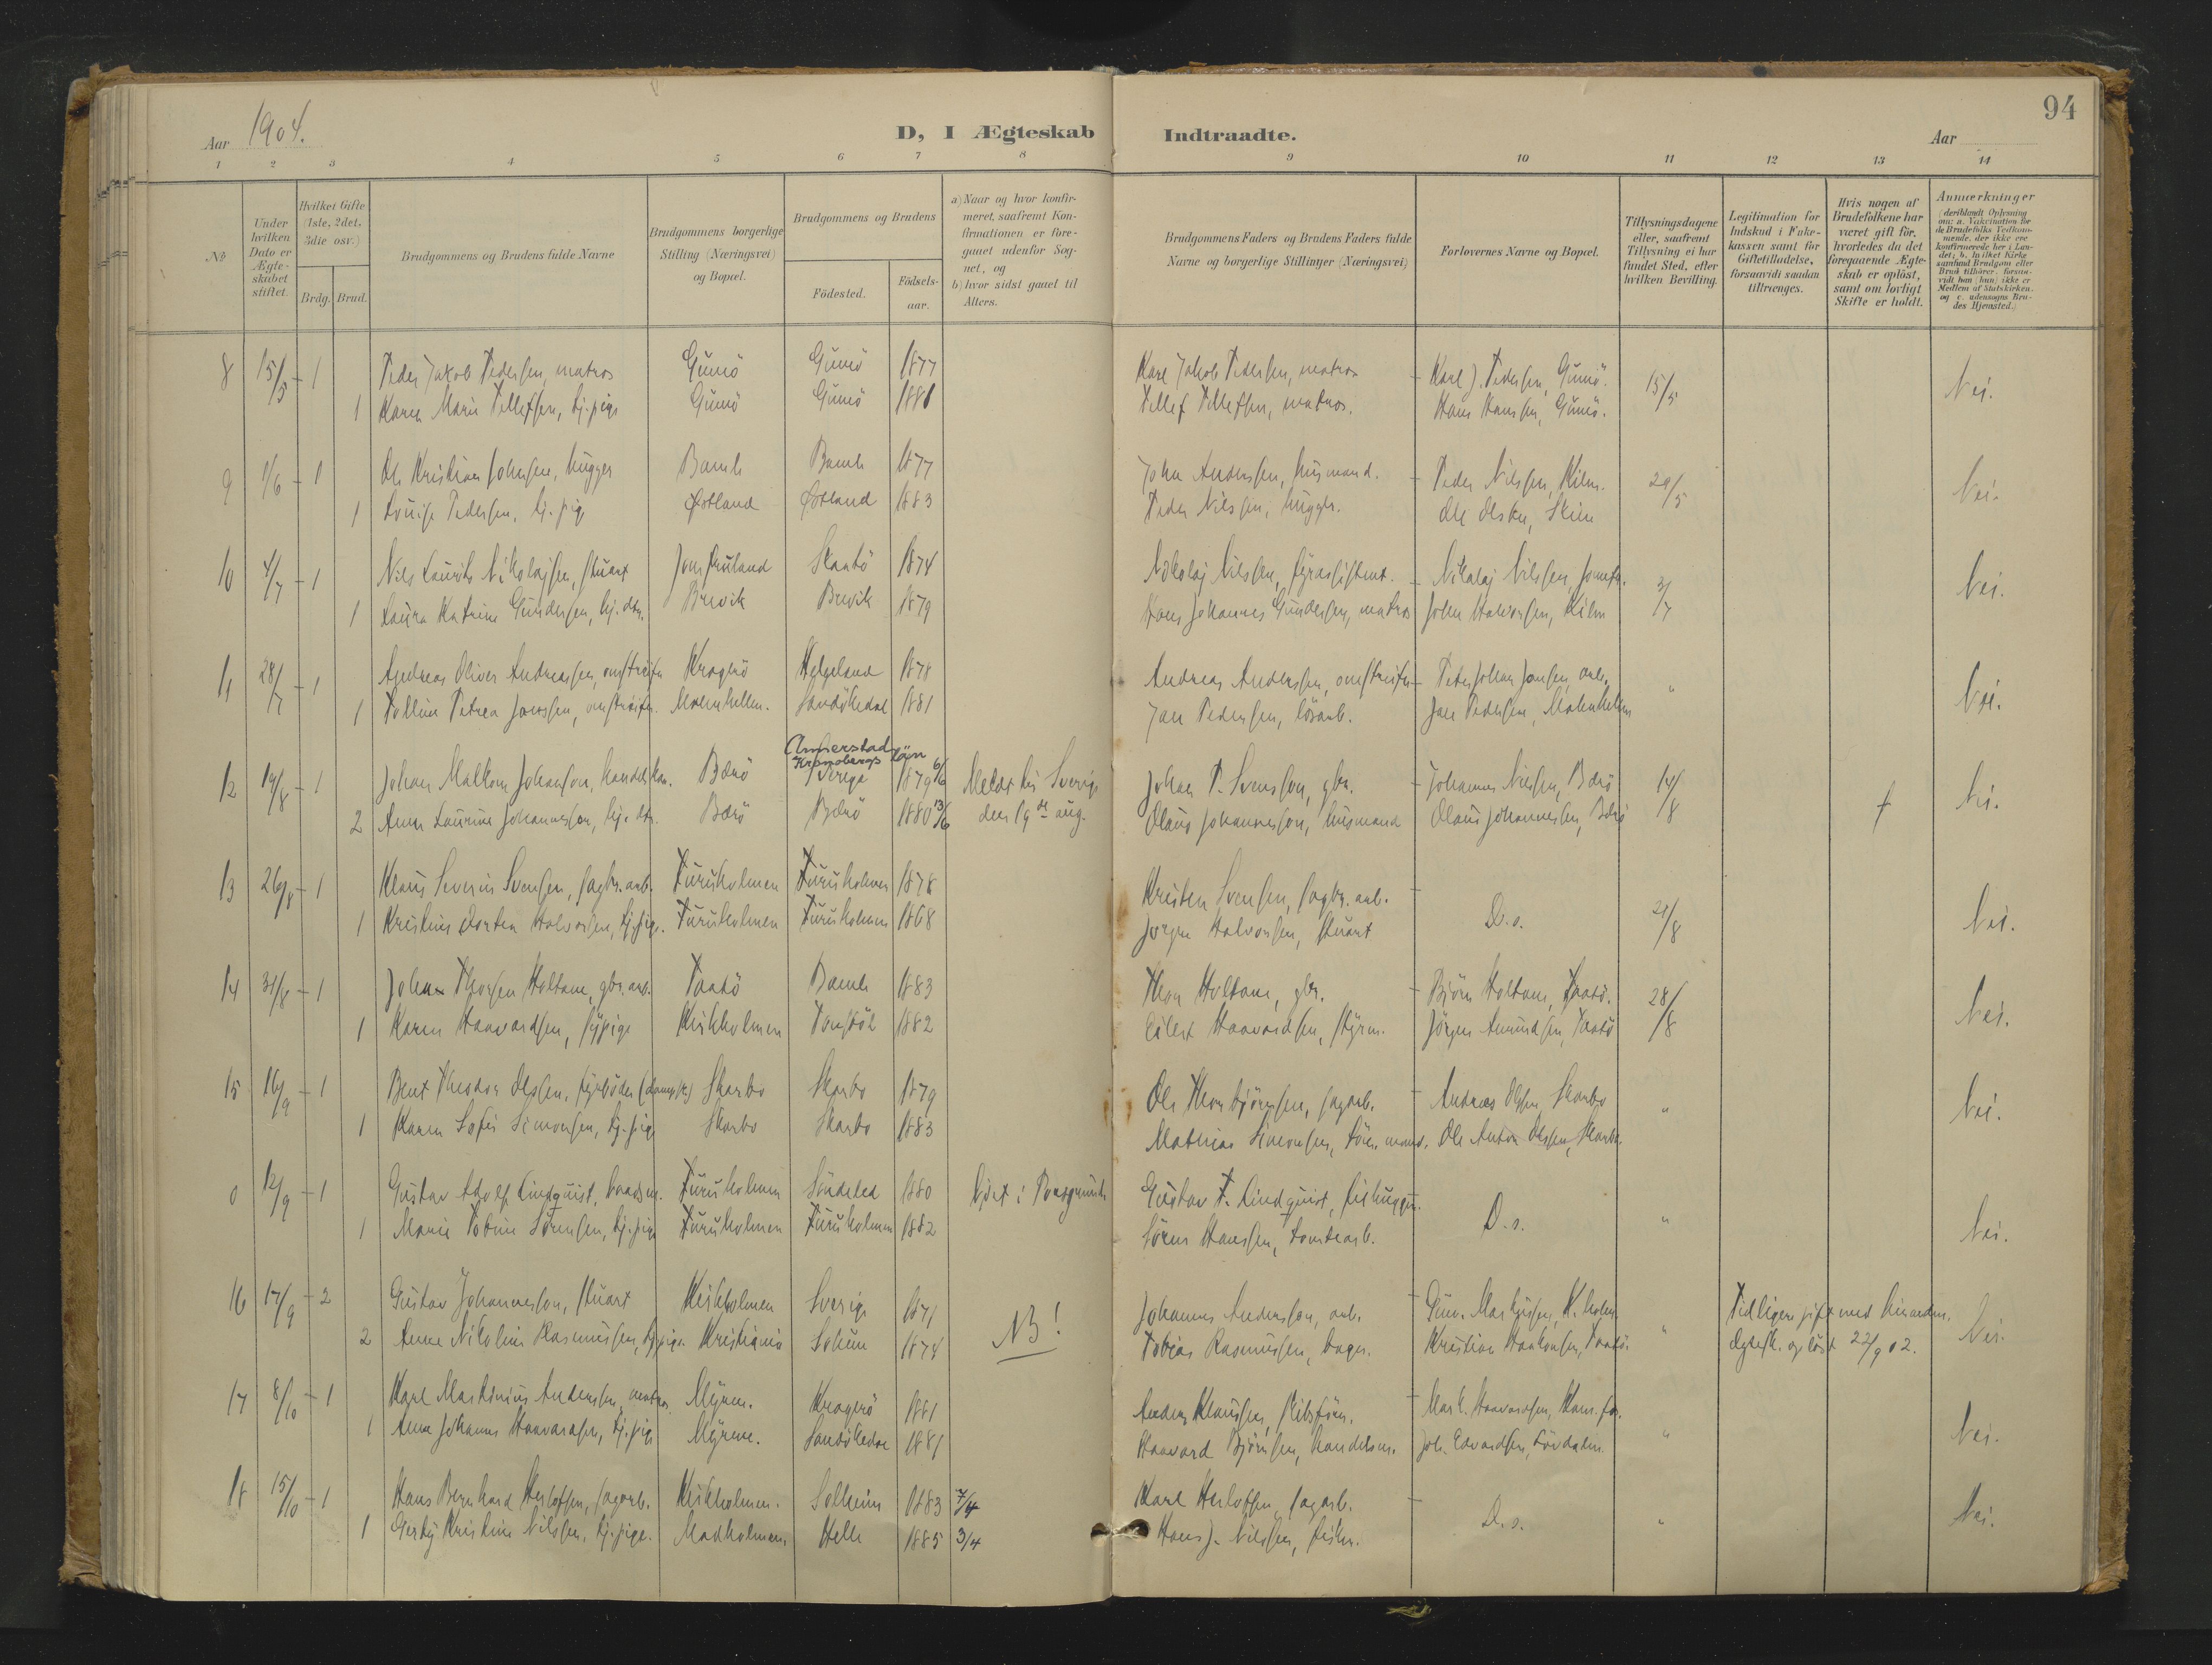 94
Aar 1904.
D, I Ægteskab Indtraadte.
Aar
1 2 3 4 5 6 7 8 9 10 11 12 13 14
No
Under hvilken Dato er Ægteskabet stiftet.
Hvilket Gifte (1ste, 2det, 3die osv.)
Brdg. Brud.
Brudgommens og Brudens fulde Navne
Brudgommens borgerlige Stilling (Næringsvei) og Bopæl.
Brudgommens og Brudens
Födested.
Födselsaar.
a) Naar og hvor konfirmeret, saafremt Konfirmationen er foregaaet udenfor Sognet, og
b) hvor sidst gaaet til Alters.
Brudgommens Faders og Brudens Faders fulde Navne og borgerlige Stillinger (Næringsvei)
Forlovernes Navne og Bopæl.
Tillysningsdagene eller, saafremt Tillysning ei har fundet Sted, efter hvilken Bevilling.
Legitimation for Indskud i Enkekassen samt for Giftetilladelse, forsaavidt saadan tiltrænges.
Hvis nogen af Brudefolkene har været gift för, hvorledes da det foregaaende Ægteskab er oplöst, samt om lovligt Skifte er holdt.
Anmærkninger (deriblandt Oplysning om: a. Vaccination for de Brudefolks Vedkommende, der ikke ere konfirmerede her i Landet; b. hvilket Kirkesamfund Brudgom eller Brud tilhörer, forsaavidt han (hun) ikke er Medlem af Statskirken, og c. udensogns Brudes Hjemsted.)
8 15/5 - 1 Peder Jakob Pedersen, matros Gumö Gumö 1877 Karl Jakob Pedersen, matros - Karl J. Pedersen, Gumö. 15/5 Nei.
1 Karen Marie Tellefsen, tj.pige Gumö Gumö 1881 Tellef Tellefsen, matros. Hans Hansen, Gumö.
9 1/6 - 1 Ole Kristian Johnsen, hugger Bamle Bamle 1877 John Andersen, husmand. - Peder Nilsen, Kilen. 29/5 Nei.
1 Louise Pedersen, tj.pige Østland Østland 1883 Peder Nilssen, hugger. Ole Olsen, Skien
10 4/7 - 1 Nils Laurits Nikolajsen, stuart Jomfruland Skaatö 1874 Nikolaj Nilssen, fyrassistent. - Nikolaj Nilssen, Jomfr. 3/7 Nei.
1 Laura Katrine Gundersen, hj. dtr. Brevik Brevik 1879 Hans Johannes Gundersen, matros John Halvorsen, Kilen
11 28/7 - 1 Andreas Oliver Andreassen, omstreifer Kragerö Helgeland 1878 Andreas Andersen, omstreifer - Peter Johan Jansen, arb. " Nei.
1 Tolline Petrea Janssen, omstreifer. Malmhellen. Sandökedal 1881 Jan Pedersen, lösarb. Jan Pedersen, Malmhellen
Annerstad
Kronobergs län
12 19/8 - 1 Johan Malkom Johansson, handelskar. Bærö Sverge 1879 6/6 Meldt til Sverige Johan P. Svensson, gbr. - Johannes Nilsen, Bærö 14/8 Nei.
2 Anna Laurine Johannessen, hj. dtr. Bærö Bærö 1880 13/6 den 19de aug. Olaus Johannessen, husmand Olaus Johannessen, Bærö †
13 26/8 - 1 Klaus Severin Svensen, sagbr.arb. Furuholmen Furuholmen 1878 Kristen Svensen, sagbr. arb. - D.s. 21/8 Nei.
1 Kristine Dorthea Halvorsen, tj.pige. Furuholmen Furuholmen 1868 Jørgen Halvorsen, stuart
14 31/8 - 1 Johan Thorsen Holtane, gbr. arb. Taatö Bamle 1883 Thor Holtane, gbr. - Björn Holtane, Taatö. 28/8 Nei.
1 Karen Haavardsen, sypige Kirkholmen 1882 Eilert Haavardsen, styrm. Jörgen Amundsen, Taatö
15 16/9 - 1 Bent Theodor Olsen, fyrböder (dampsk.) Skarbo Skarbo 1879 Ole Thorbjörnsen, sagarb. - Andreas Olsen, Skarbo " Nei.
1 Karen Sofie Simonsen, tj.pige Skarbo Skarbo 1883 Mathias Simonsen, Ole Anton Olsen, Skarbo.
0 12/9 - 1 Gustav Adolf Lindquist, baadsm. Furuholmen Söndeled 1880 Viet i Porsgrund Gustav F. Lindquist, D.s. " Nei.
1 Marie Tobine Sörensen, tj.pige Furuholmen Furuholmen 1882 Sören Hanssen, tomtearb.
16 17/9 - 2 Gustav Johannesson, stuart Kirkholmen Sverige 1871 NB! Johannes Andersson, arb. - Gun. Markussen, K.holm. " Tidligere gift med hinanden. Nei.
2 Anne Nikoline Rasmussen, tj.pige. Kristiania 1874 Tobias Rasmussen, bager. Kristian Haakonsen, Taatö. Ægtesk. oplöst 22/9 02.
17 8/10 - 1 Karl Martinius Andersen, matros. Myren. Kragerö 1881 Anders Klausen, skibsförer. - Mart. Haavardsen, " Nei.
1 Anne Johanne Haavardsen, tj.pige Myren. Sandökedal 1881 Haavard Björnsen, handelsm. Joh. Edvardsen,
18 15/10 - 1 Hans Bernhard Herlofsen, sagarb. Kirkholmen. Solheim 1883 7/4 Karl Herlofsen, sagarb. - D.s. " Nei.
1 Gerty Kristine Nilsen, tj.pige. Madholmen. Helle 1885 3/4 Hans J. Nilsen, fisker.